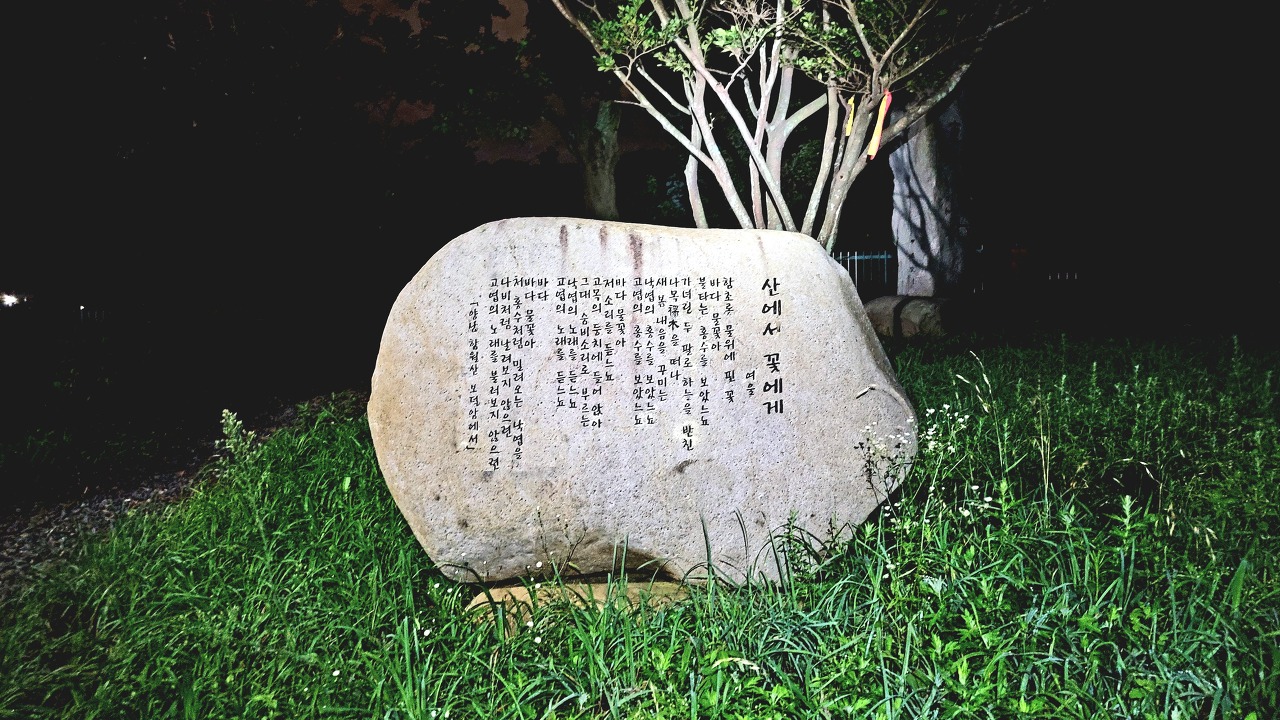 산에서 꽃에게
여울
함초롯 물위에 핀 꽃
바다 물꽃아
불타는 홍수를 보았느뇨
가녀린 두 팔로 하늘을 받친
나목裸木을 떠나
새봄 내음을 꾸미는
낙엽의 홍수를 보았느뇨
고엽의 홍수를 보았느뇨
바다 물꽃아
저 소리를 듣느뇨
고목의 둥치에 들어 앉아
그대 숨비소리로 부르는
낙엽의 노래를 듣느뇨
고엽의 노래를 듣느뇨
바다
바다 물꽃아
처 홍수처럼 밀려오는 낙엽을
나비처럼 날려보지 않으련
고엽의 노래를 불러보지 않으련
「함남 향원산 보덕암에서」